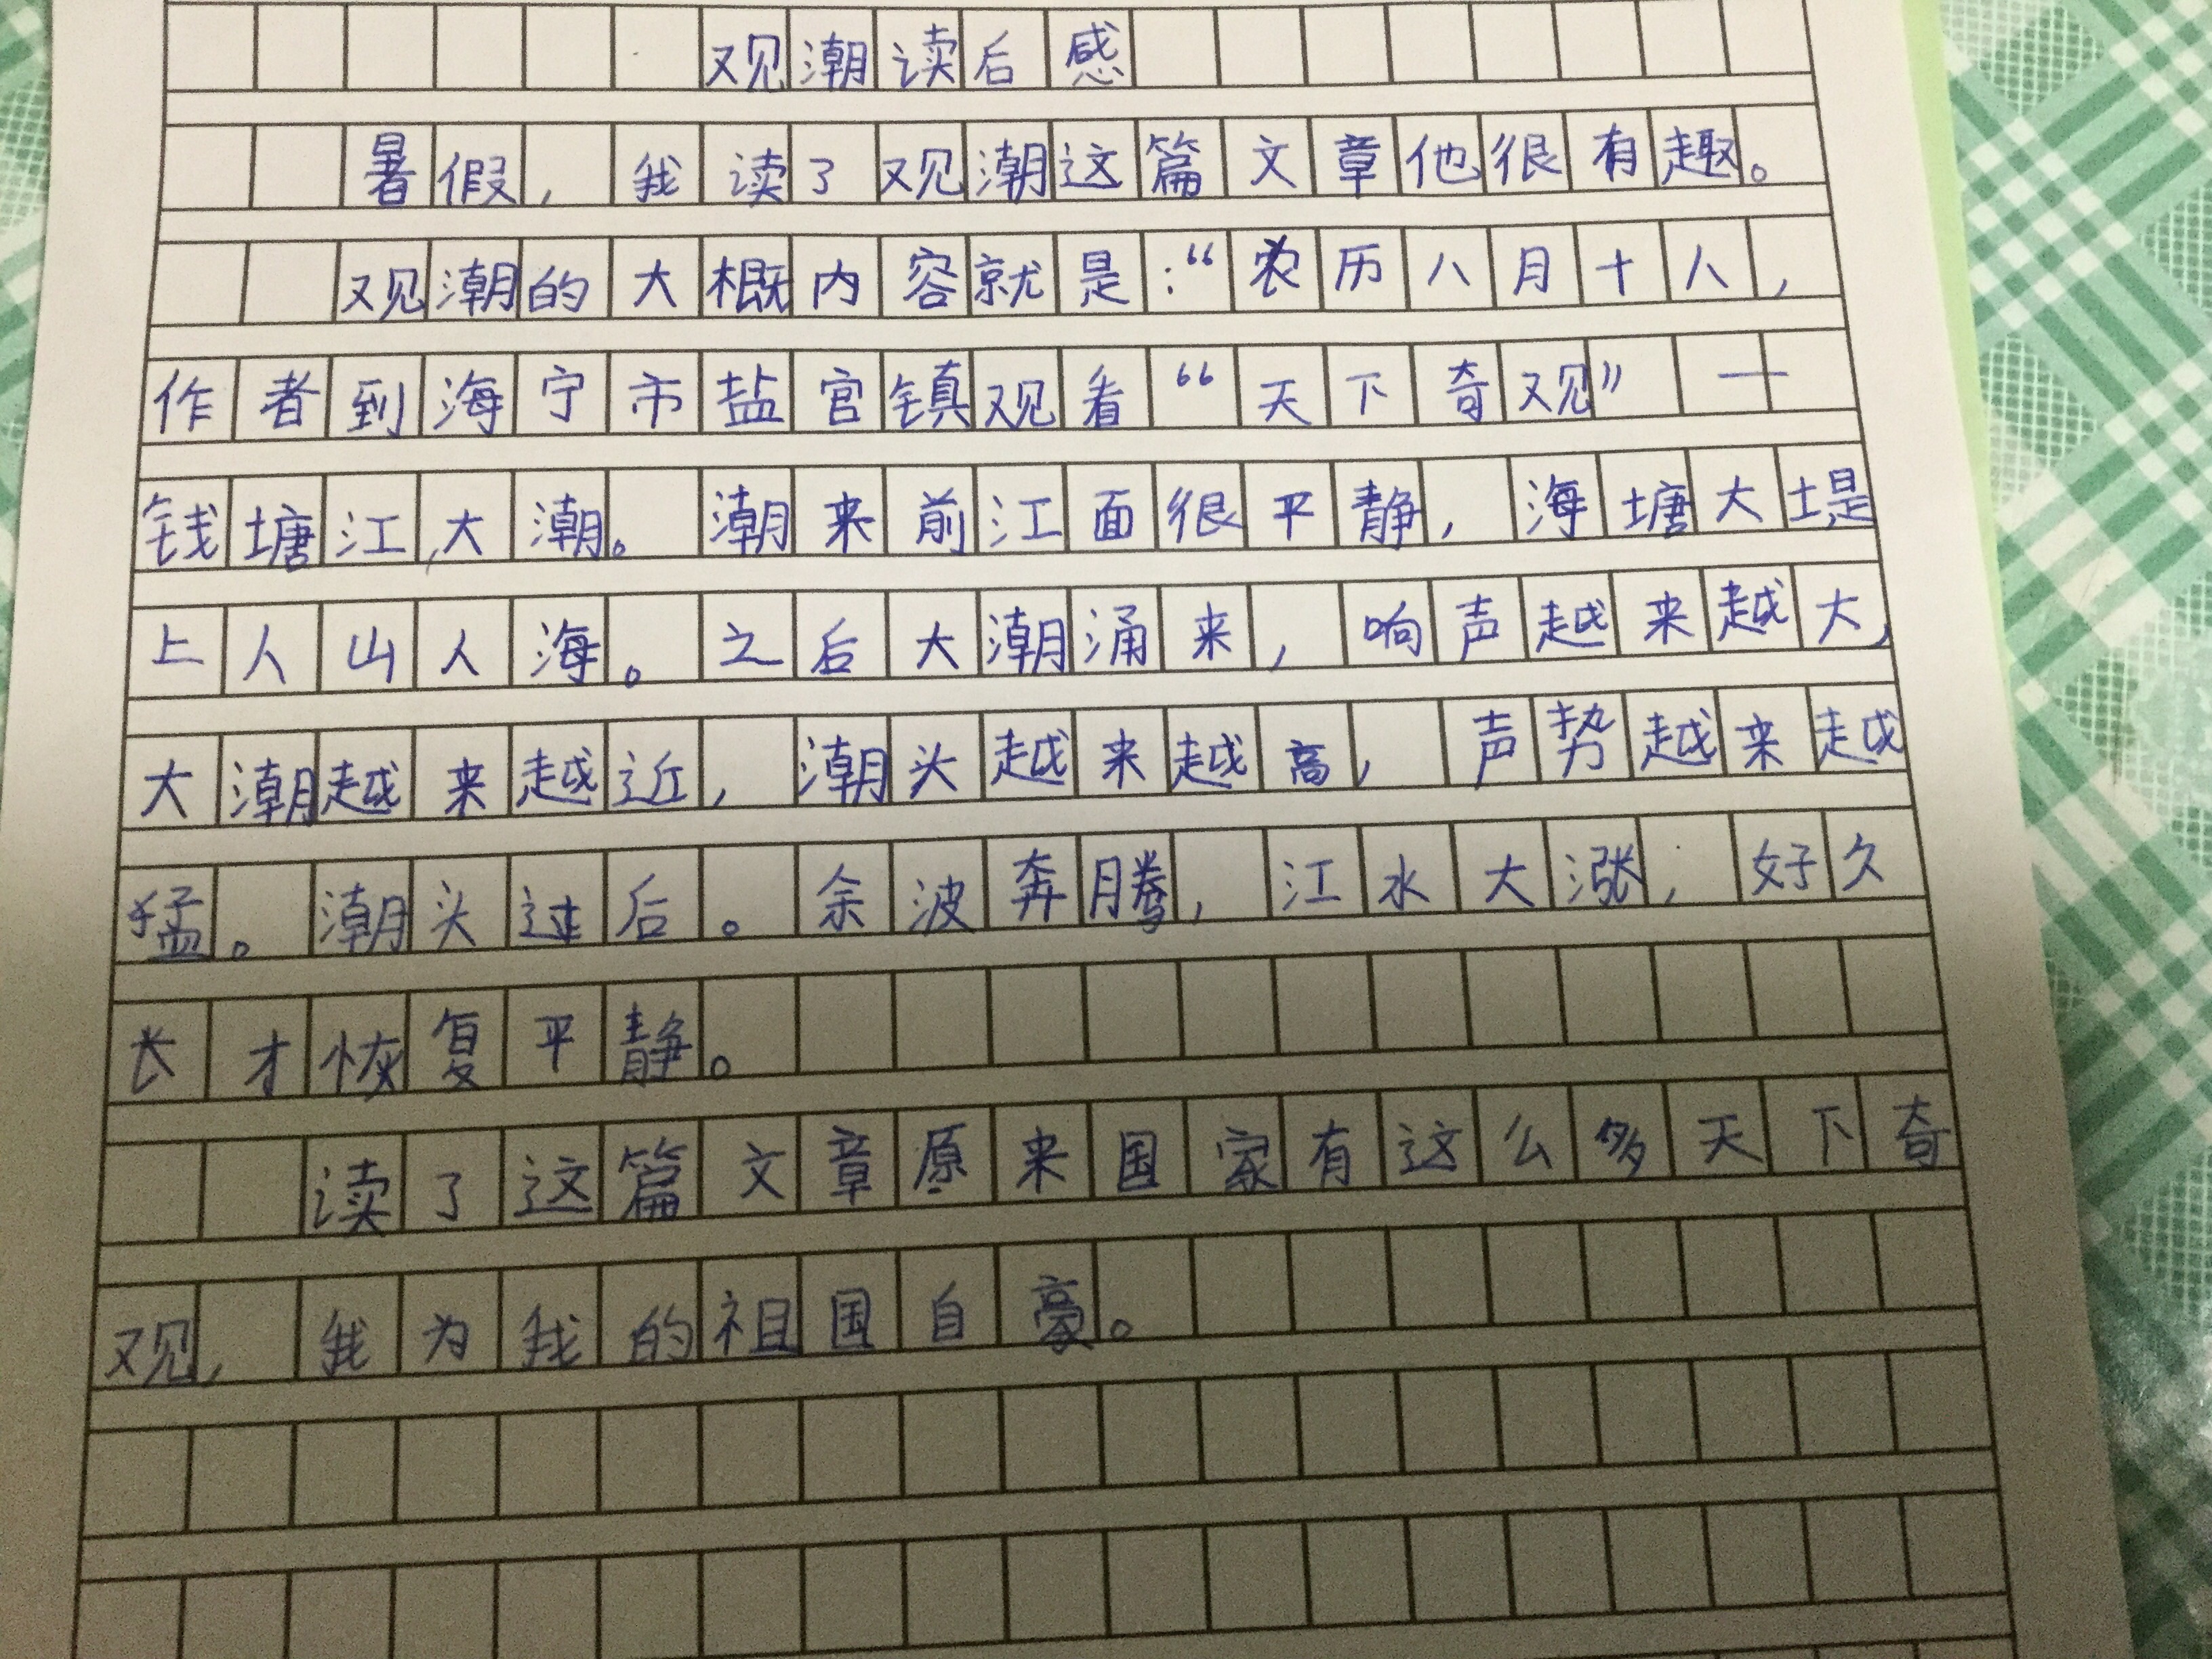 观潮读后感
暑假，我读了观潮这篇文章他很有趣。
观潮的大概内容就是：“农历八月十八，
作者到海宁市盐官镇观看“天下奇观”——
钱塘江大潮。潮来前江面很平静，海塘大堤
上人山人海。之后大潮涌来，响声越来越大，
大潮越来越近，潮头越来越高，声势越来越
猛。潮头过后。余波奔腾，江水大涨，好久
长才恢复平静。
读了这篇文章原来国家有这么多天下奇
观，我为我的祖国自豪。